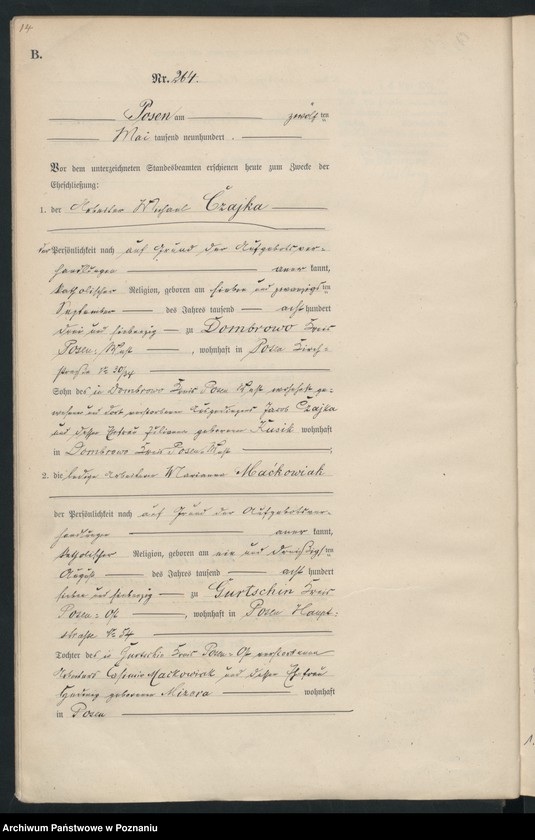 14
B.
Nr. 264.
Posen am zwölften
Mai tausend neunhundert
Vor dem unterzeichneten Standesbeamten erschienen heute zum Zwecke der
Eheschließung:
1. der Arbeiter Michael Czajka
der Persönlichkeit nach auf Grund der Aufgebotsver-
handlungen anerkannt,
katholischer Religion, geboren am sieben und zwanzigsten
September des Jahres tausend achthundert
drei und siebenzig zu Dombrowo Kreis
Posen-West, wohnhaft in Posen
straße No
Sohn des in Dombrowo Kreis Posen West wohnhaft ge-
wesenen und dort verstorbenen Czajka
und dessen Ehefrau Juliana geborenen Kusik wohnhaft
in Dombrowo Kreis Posen West
2. die ledige Arbeiterin Marianna Maćkowiak
der Persönlichkeit nach auf Grund der Aufgebotsver-
handlungen anerkannt,
katholischer Religion, geboren am ein und dreißigsten
August des Jahres tausend achthundert
sieben und siebenzig zu Gurtschin Kreis
Posen-Ost, wohnhaft in Posen Haupt-
straße No
Tochter des in Gurtschin Kreis Posen-Ost verstorbenen
Arbeiters Casimir Maćkowiak und dessen Ehefrau
Hedwig geborenen Mizera wohnhaft
in Posen
Archiwum Państwowe w Poznaniu